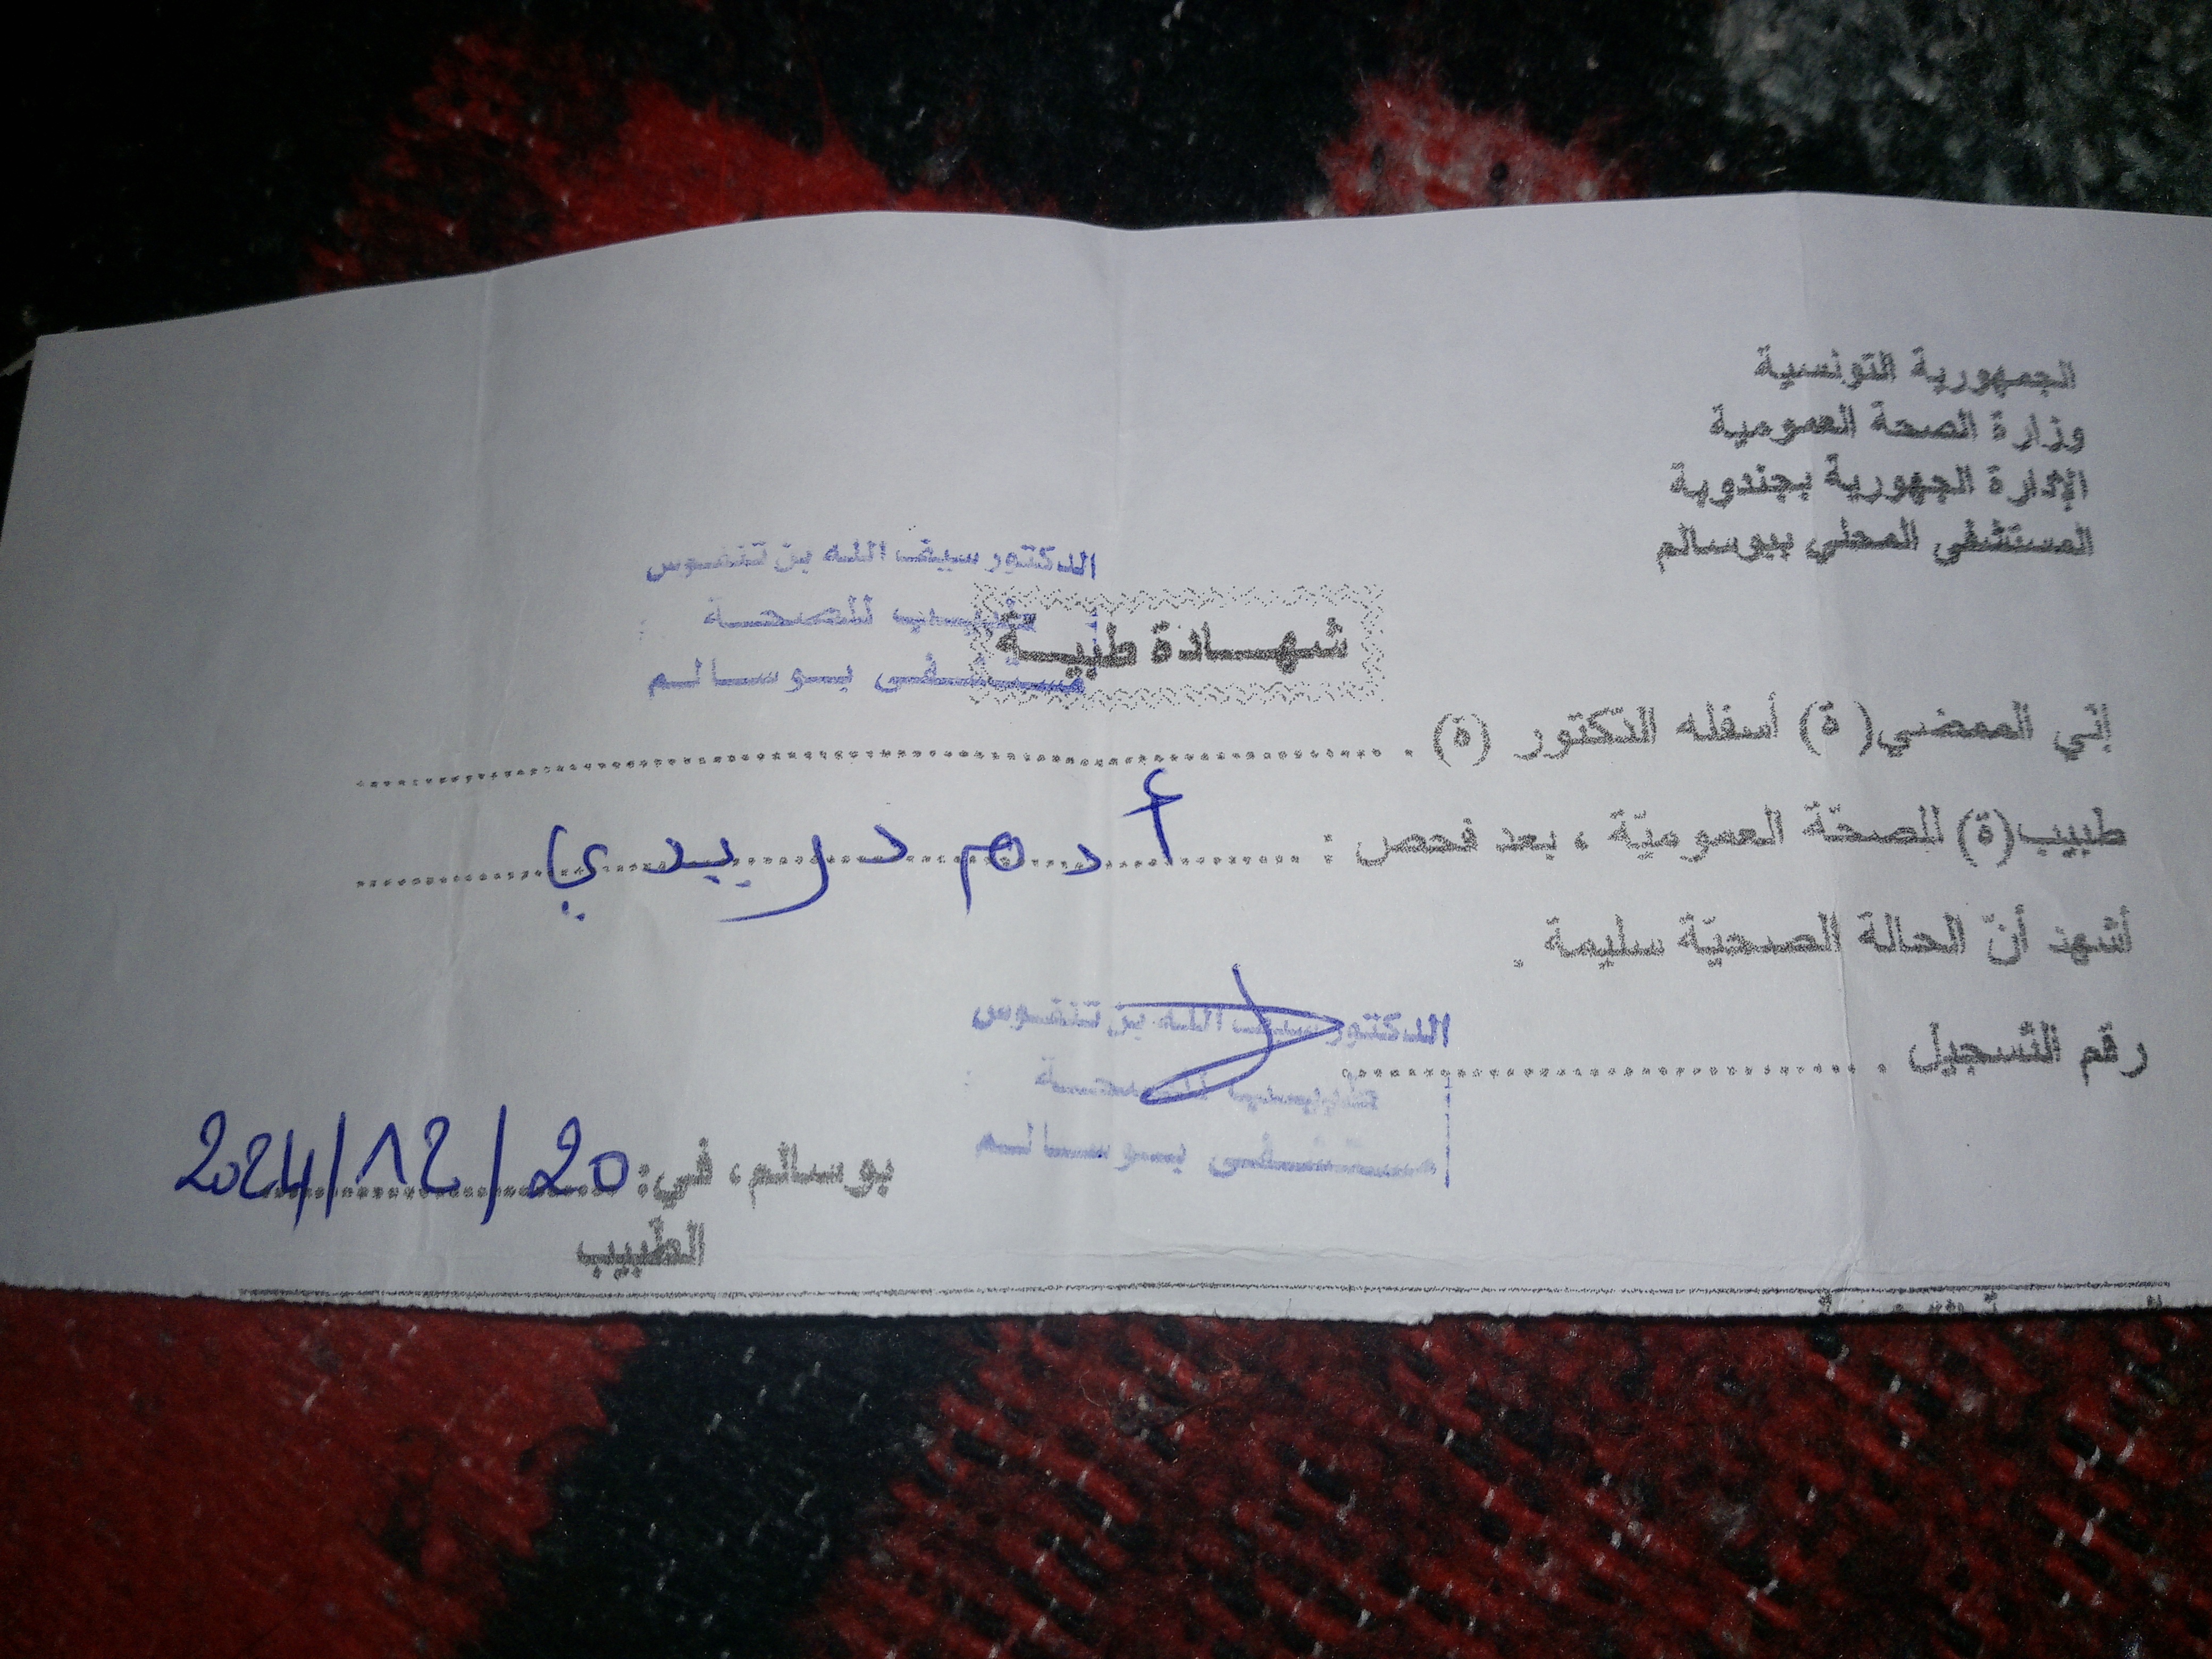 الجمهورية التونسية
وزارة الصحة العمومية
الإدارة الجهورية بجندوبة
المستشفى المحلي ببوسالم
الدكتور سيف الله بن تنفوس
طبيب للصحة
مستشفى بوسالم
شهادة طبية
إني الممضي(ة) أسفله الدكتور (ة) .
طبيب(ة) للصحّة العموميّة ، بعد فحص : أدم دريدي
أشهد أنّ الحالة الصحيّة سليمة .
الدكتور سيف الله بن تنفوس
رقم التسجيل .
طبيب للصحة
مستشفى بوسالم
بوسالم، في: 20/12/2024
الطبيب